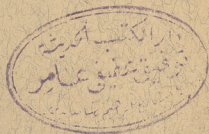 دار الكتب الحديثة
توفيق عفيفى عامر